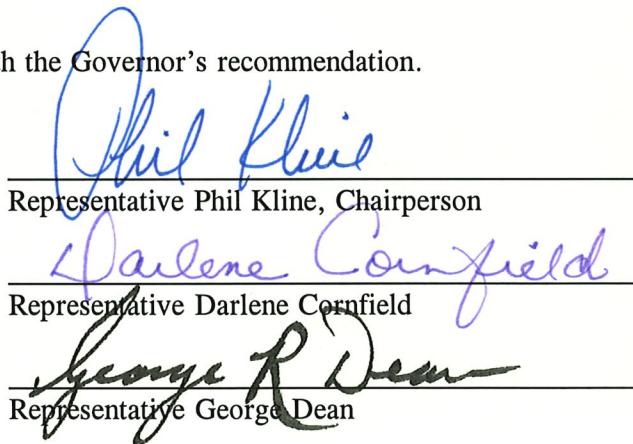 h the Governor's recommendation.
Phil Kline
Representative Phil Kline, Chairperson
Darlene Cornfield
Representative Darlene Cornfield
George R Dean
Representative George Dean